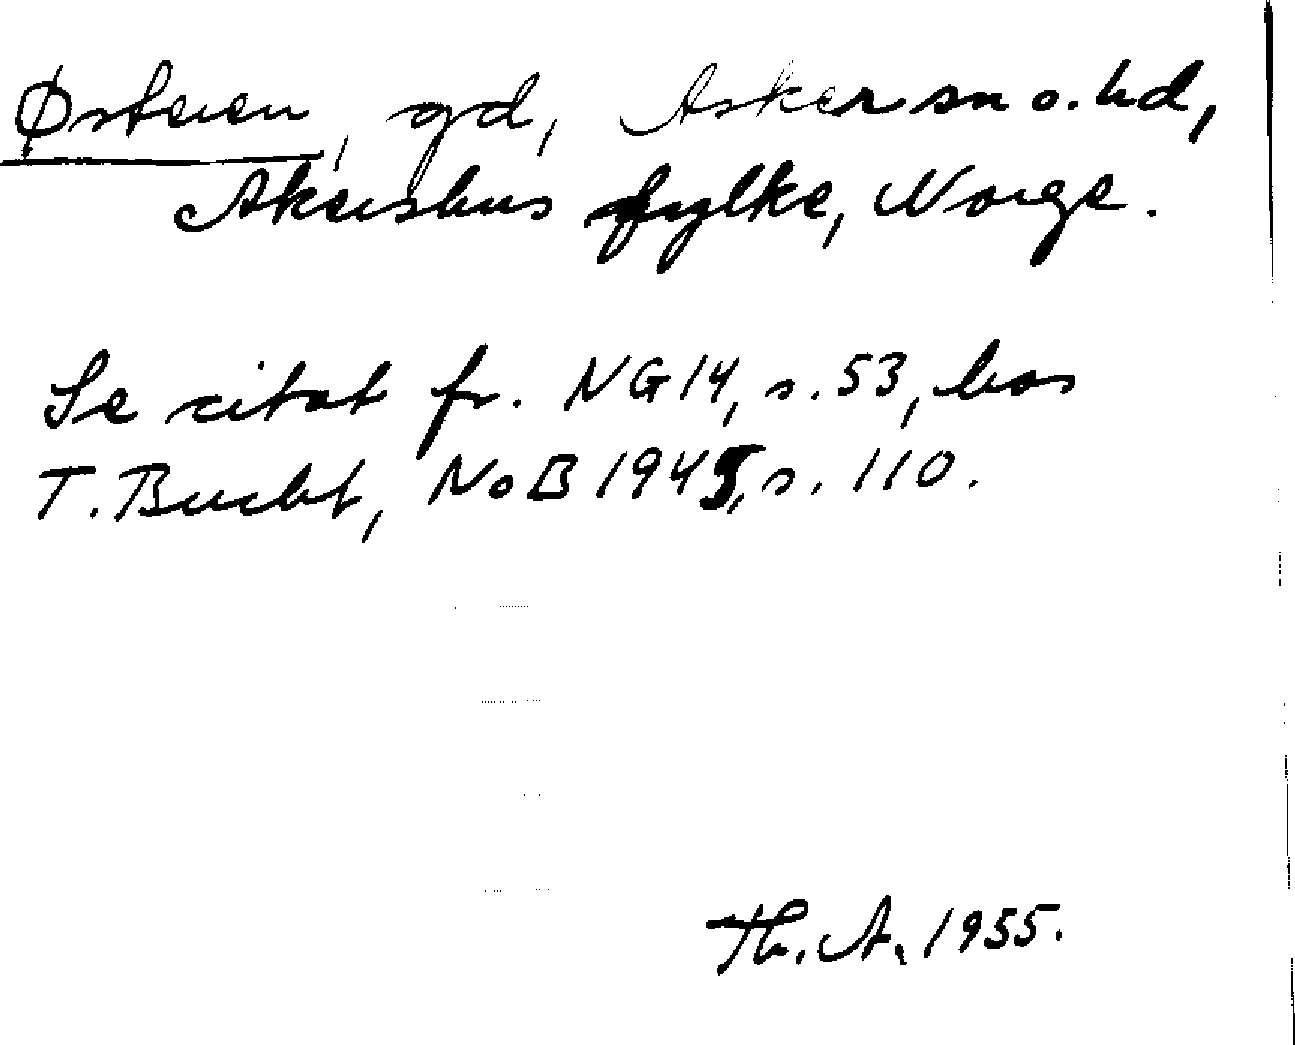 Østeren, gd, Asker sn o. hd,
Akershus fylke, Norge.
Se citat fr. NG 14, s. 53, hos
T. Bucht, NoB 1945, s. 110.
Th. A. 1955.